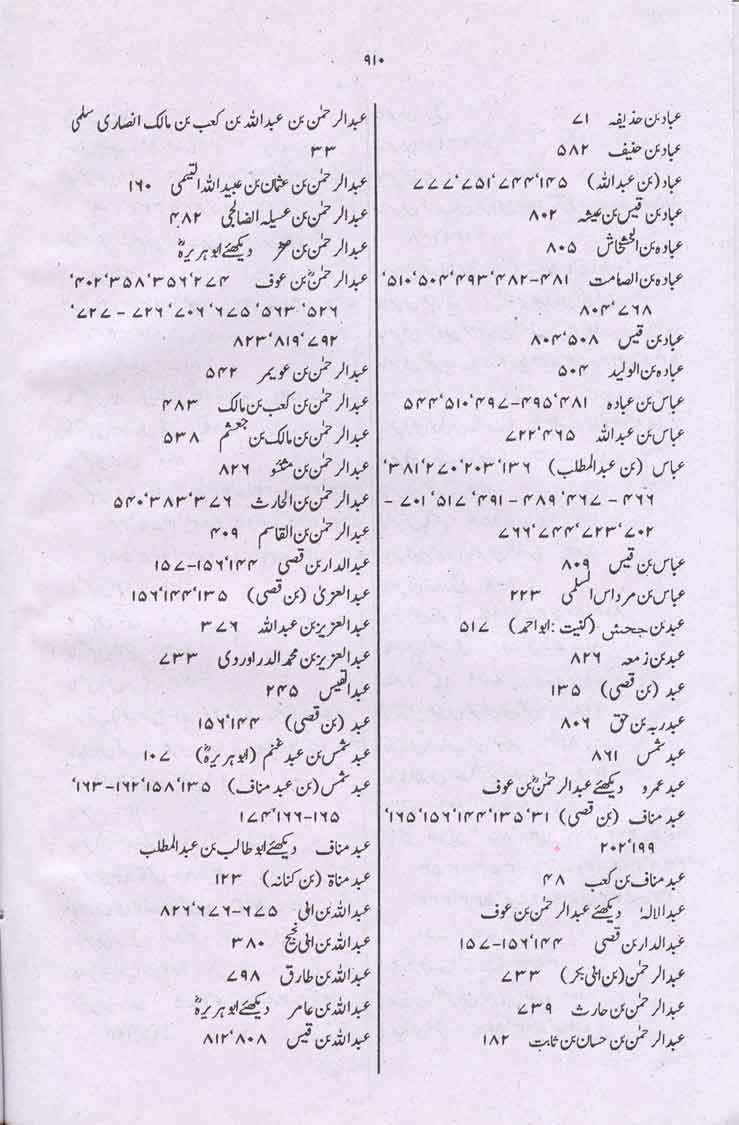 ۹۱۰
عباد بن حذیفہ ۷۱
عباد بن حنیف ۵۸۲
عباد (بن عبداللہ) ۱۴۵‘۷۴۴‘۷۵۱‘۷۷۷
عباد بن قیس بن عیشہ ۸۰۲
عبادہ بن الخشخاش ۸۰۵
عبادہ بن الصامت ۴۸۱–۴۸۲‘۴۹۳‘۵۰۴‘۵۱۰‘
۷۶۸‘۸۰۴
عباد بن قیس ۵۰۸‘۸۰۴
عبادہ بن الولید ۵۰۴
عباس بن عبادہ ۴۸۱‘۴۹۵–۴۹۷‘۵۱۰‘۵۴۴
عباس بن عبداللہ ۴۶۵‘۷۲۲
عباس (بن عبدالمطلب) ۱۳۶‘۲۰۳‘۲۷۰‘۳۸۱‘
۴۶۶ – ۴۶۷‘۴۸۹ – ۴۹۱‘۵۱۷‘۷۰۱ –
۷۰۲‘۷۲۳‘۷۴۴‘۷۶۶
عباس بن قیس ۸۰۹
عباس بن مرداس السلمی ۲۲۳
عبد بن جحش (کنیت: ابواحمد) ۵۱۷
عبد بن زمعہ ۸۲۶
عبد (بن قصی) ۱۳۵
عبدربہ بن حق ۸۰۶
عبد شمس ۸۶۱
عبد عمرو دیکھئے عبدالرحمٰنؓ بن عوف
عبد مناف (بن قصی) ۳۱‘۱۳۵‘۱۴۴‘۱۵۶‘۱۶۵‘
۱۹۹‘۲۰۲
عبد مناف بن کعب ۴۸
عبدالالہٰ دیکھئے عبدالرحمٰن بن عوف
عبدالدار بن قصی ۱۴۴‘۱۵۶–۱۵۷
عبدالرحمٰن (بن ابی بکر) ۷۳۳
عبدالرحمٰن بن حارث ۷۳۹
عبدالرحمٰن بن حسان بن ثابت ۱۸۲
عبدالرحمٰن بن عبداللہ بن کعب بن مالک انصاری سلمی
۳۳
عبدالرحمٰن بن عثمان بن عبیداللہ القیمی ۱۶۰
عبدالرحمٰن بن عسیلہ الضالجی ۴۸۲
عبدالرحمٰن بن صخر دیکھئے ابوہریرہؓ
عبدالرحمٰنؓ بن عوف ۲۷۴‘۳۵۶‘۳۵۸‘۴۰۲‘
۵۲۶‘۵۶۳‘۶۷۵‘۷۰۶‘۷۲۶ – ۷۲۷‘
۷۹۲‘۸۱۹‘۸۲۳
عبدالرحمٰن بن عویمر ۵۴۲
عبدالرحمٰن بن کعب بن مالک ۴۸۳
عبدالرحمٰن بن مالک بن جعشم ۵۳۸
عبدالرحمٰن بن مشنؤ ۸۲۶
عبدالرحمٰن بن الحارث ۳۷۶‘۳۸۳‘۵۴۰
عبدالرحمٰن بن القاسم ۴۰۹
عبدالدار بن قصی ۱۴۴‘۱۵۶–۱۵۷
عبدالعزیٰ (بن قصی) ۱۳۵‘۱۴۴‘۱۵۶
عبدالعزیز بن عبداللہ ۳۷۶
عبدالعزیز بن محمد الدراوردی ۷۳۳
عبدالقیس ۲۴۵
عبد (بن قصی) ۱۴۴‘۱۵۶
عبدشمس بن عبدغنم (ابوہریرہؓ) ۱۰۷
عبدشمس (بن عبد مناف) ۱۳۵‘۱۵۸‘۱۶۲–۱۶۳‘
۱۶۵–۱۶۶‘۱۷۴
عبد مناف دیکھئے ابوطالب بن عبدالمطلب
عبد مناۃ (بن کنانہ) ۱۲۳
عبداللہ بن ابی ۶۷۵–۶۷۶‘۸۲۶
عبداللہ بن ابی نجیح ۳۸۰
عبداللہ بن طارق ۷۹۸
عبداللہ بن عامر دیکھئے ابوہریرہؓ
عبداللہ بن قیس ۸۰۸‘۸۱۲